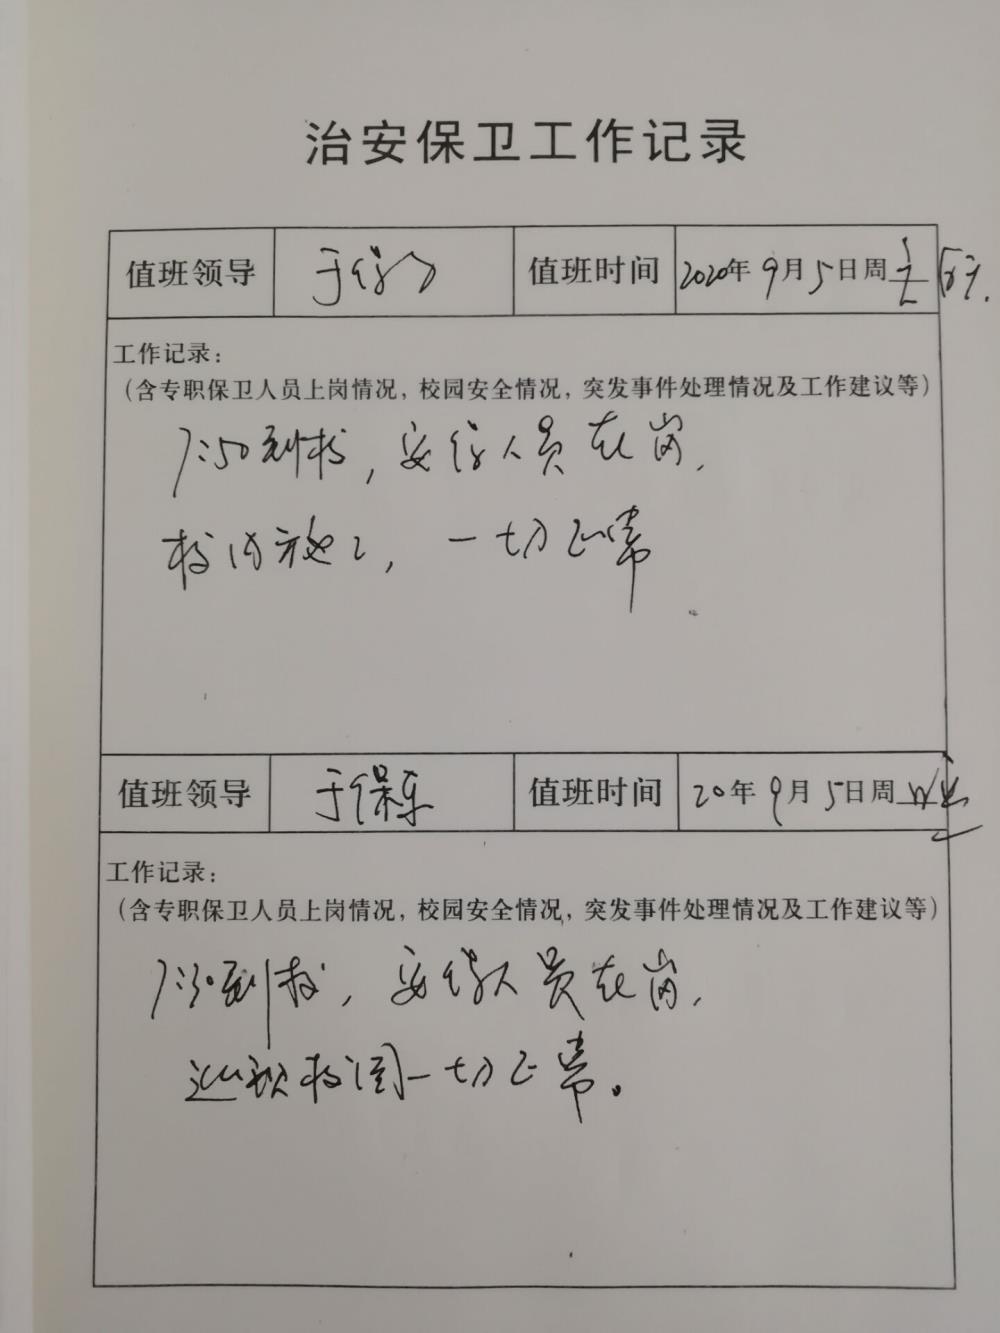 治安保卫工作记录
值班领导 于保 值班时间 2020年9月5日周
工作记录：
（含专职保卫人员上岗情况，校园安全情况，突发事件处理情况及工作建议等）
7:50到校，安保人员在岗，
校内施工，一切正常
值班领导 于保乐 值班时间 20年9月5日周
工作记录：
（含专职保卫人员上岗情况，校园安全情况，突发事件处理情况及工作建议等）
7:30到校，安保人员在岗，
巡视校园一切正常。